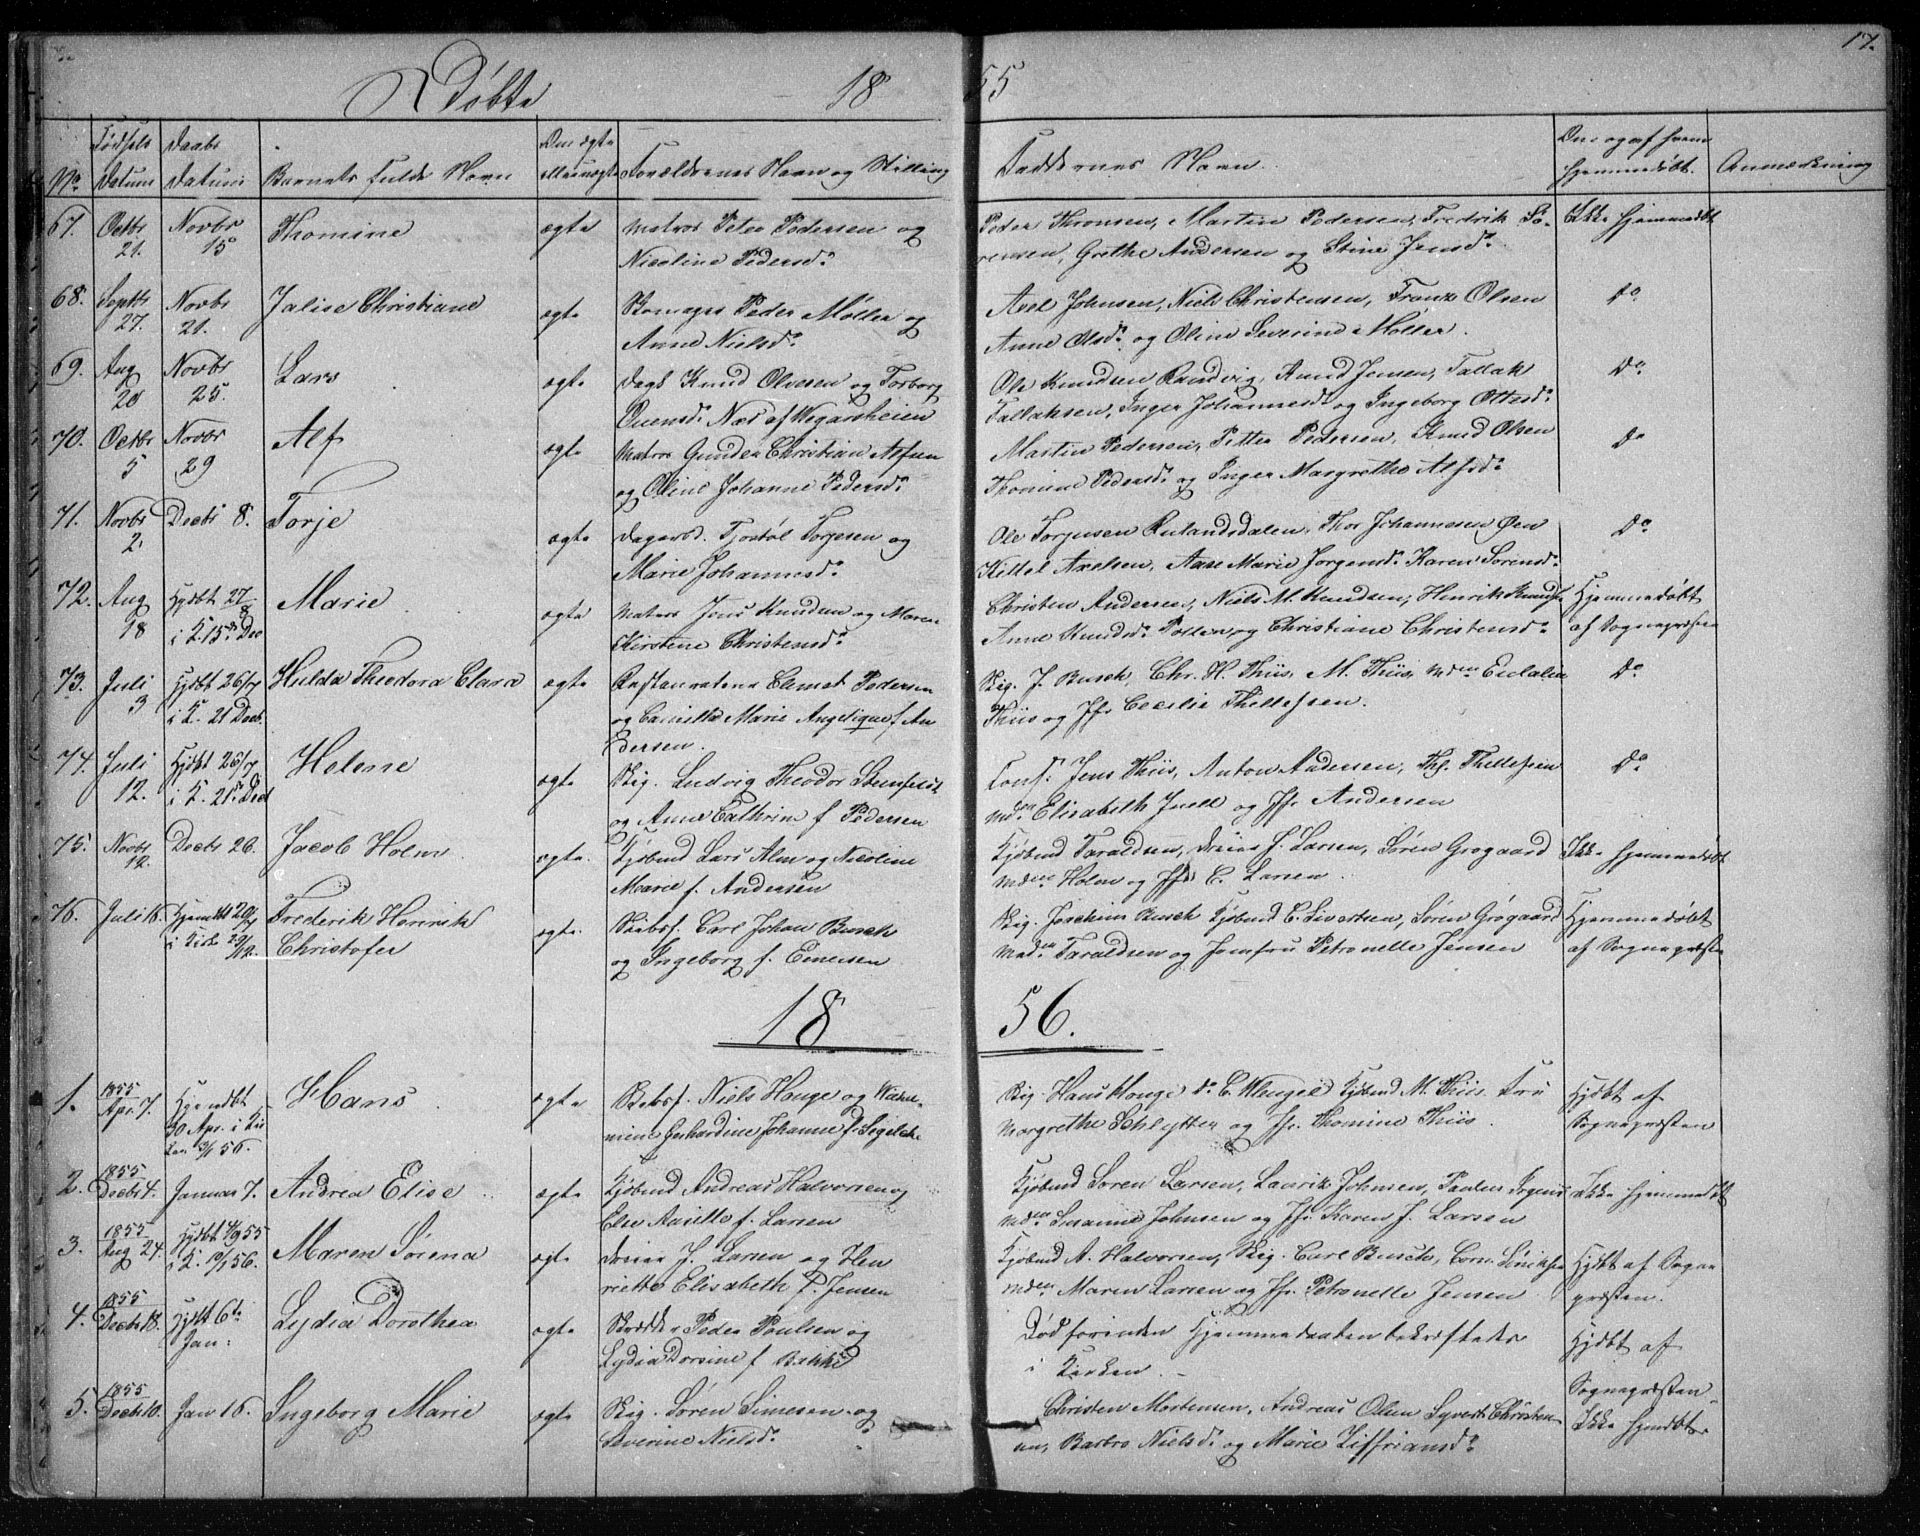 17.
Døbte 1855
No
Fødsels Datum
Daabs Datum
Barnets fulde Navn
Om ægte eller uægte
Forældrenes Navn og Stilling
Faddernes Navn
Om og af hvem hjemmedøbt.
Anmærkning
67. Octbr 21. Novbr 15 Thomine ægte Matros Peter Pedersen og
Nicoline Pedersd.
Peder Thomsen, Martin Pedersen, Fredrik Sø-
rensen, Grethe Andersen og Stine Jensd.
Ikke hjemmedøbt
68. Septbr 27. Novbr 21. Jalise Christiane ægte Skomager Peder Møller og
Anne Nielsd.
Axel Johnsen, Niels Christensen, Franz Olsen
Anne Olsd. og Oline Severine Møller.
Do
69. Aug 20 Novbr 25. Lars ægte Dags. Knud Olvesen og Torborg
Ouensd. Næs af Wegarsheien
Ole Knudsen Randvig, Knud Jensen, Tallak
Tallaksen, Inger Johannesd. og Ingeborg Ottesd.
Do
70. Octbr 5 Novbr 29 Alf ægte Matros Gunder Christian Alfsen
og Oline Johanne Pedersd.
Martin Pedersen, Petter Pedersen, Knud Olsen
Thomine Pedersd. og Inger Margrethe Alfsd.
Do
71. Novbr 2. Decbr 8. Torje ægte Dagarbd. Tjostøl Torjesen og
Marie Johannesd.
Ole Torjusen Rulandsdalen, Thor Johannesen Øen
Kittel Axelsen, Aase Marie Jørgensd. Karen Sørensd.
Do
72. Aug 18 Hjdbt 27/8 i K. 15de Dec Marie ægte Matros Jens Knudsen og Maren
Kirstine Christensd.
Christen Andersen, Niels M. Knudsen, Henrik Knudse
Anne Knudsd. og Christiane Christensd.
Hjemmedøbt
af Sognepræsten
73. Juli 3 Hjdbt 26/7 i K. 21 Decb. Hulda Theodora Clara ægte Restauratene Clemet Pedersen
og Camilla Marie Angelique f. An
dersen.
Skig. J. Busch, Chr. H. Thiis, M. Thiis, Mdm Eulalia
Thiis og Jfr. Cecilie Thellefsen.
Do
74. Juli 12. Hjdbt 26/7 i K. 21de Dec Helene ægte Skig. Ludvig Theodor Stenfeldt
og Anne Cathrine f. Pedersen
Cons. Jens Thiis, Anton Andersen, Th. Thellefsen
Mdm Elisabeth Juell og Jfr. Andersen
Do
75. Novbr 12. Decbr 26. Jacob Holm ægte. Kjøbmd Lars Alm og Nicoline
Marie f. Andersen
Kjøbmd Taraldsen, Dreier J. Larsen, Søren Grøgaard
Mdm Holm og Jfr C. Larsen.
Ikke hjemmedøbt
76. Juli 16. Hjemdbt 20/7 i Kirk 29/12. Frederik Henrik
Christofer
ægte. Skibsf. Carl Johan Busch
og Ingeborg f. Ennesen
Skig. Joachim Busch Kjøbmd C. Sivertsen, Søren Grøgaard
Mdm Taraldsen og Jomfru Petronelle Jensen
Hjemmedøbt
af Sognepræsten
1856.
1. 1855 Apr. 7. Hjemdbt 30 Apr. i Kir ken 3/1 56. Hans ægte Skibsf. Niels Houge og Wilhel-
mine Gerhardine Johanne f. Segelcke
Skig. Hans Houge do C. Wengel Kjøbmd M. Thiis Fru
Margrethe Schlytter og Jfr. Thomine Thiis.
Hjdbt af
Sognepræsten
2. 1855 Decbr 4. Januar 7. Andrea Elise ægte Kjøbmd Andreas Halvorsen og
Else f. Larsen
Kjøbmd Søren Larsen, Laurits Johnsen, Paulus
Mdm Susanne Johnsen og Jfr. Karen J. Larsen
Ikke hjemmedbt
3. 1855 Aug 24. Hjdbt 4/9 55 i K. 10/1 56. Maren Sørena ægte Dreier J. Larsen og Hen
riette Elisabeth f. Jensen
Kjøbmd A. Halvorsen, Skig. Carl Busch,
Mdm Maren Larsen og Jfr. Petronelle Jensen
Hjdbt af Sogne
præsten.
4. 1855 Decbr 18. Hjdbt 6te Jan: Lydia Dorothea ægte Skrædder Peder Poulsen og
Lydia Dorsine f. Bakke
Død forinden Hjemmedaaben bekræftedes
i Kirken.
Hjdbt af
Sognepræsten
5. 1855 Decbr 10. Jan 16. Ingeborg Marie ægte Skig. Søren Simesen og
Severine Nielsd.
Christen Mortensen, Andreas Olsen Syvert Christen-
sen, Barbro Nielsd. og Marie Ziffriansd.
Ikke hjemdbt